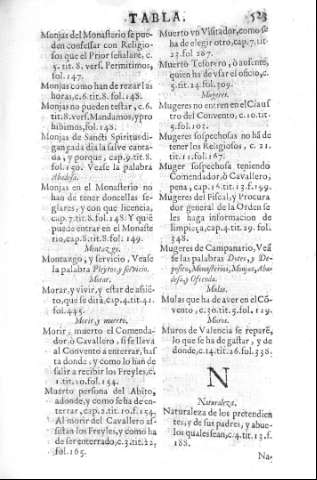 TABLA. 523
Monjas del Monasterio se pue-
den confessar con Religio-
sos que el Prior señalare, c.
5. tit. 8. vers. Permitimos,
fol. 147.
Monjas como han de rezar las
horas, c. 6. tit. 8. fol. 148.
Monjas no pueden testar, c. 6.
tit. 8. vers. Mandamos, y pro
hibimos, fol. 148.
Monjas de Sancti Spiritus di-
gan cada dia la salve canta-
da, y porque, cap. 9. tit. 8.
fol. 150. Vease la palabra
Abadesa.
Monjas en el Monasterio no
han de tener doncellas se-
glares, y con que licencia,
cap. 7. tit. 8. fol. 148. Y quiẽ
puede entrar en el Monaste
rio, cap. 8. tit. 8. fol. 149.
Montazgo.
Montazgo, y servicio, Vease
la palabra Pleytos, y servicio.
Morar.
Morar, y vivir, y estar de assiẽ-
to, que se dirà, cap. 4. tit. 41.
fol. 445.
Morir, y muerto.
Morir, muerto el Comenda-
dor, ò Cavallero, si se lleva
al Convento a enterrar, has
ta donde, y como lo han de
salir a recibir los Freyles, c.
1. tit. 10. fol. 154.
Muerto persona del Abito,
adonde, y como se ha de en-
terrar, cap. 2. tit. 10. f. 154.
Al morir del Cavallero as-
sistan los Freyles, y como ha
de ser enterrado, c. 3. tit. 12,
fol. 165.
Muerto vn Visitador, como se
ha de elegir otro, cap. 7. tit.
23. fol 287.
Muerto Tesorero, ò ausente,
quien ha de vsar el oficio, c.
5. tit. 24. fol. 309.
Mugeres.
Mugeres no entren en el Claus
tro del Convento, c. 10. tit.
5. fol. 102.
Mugeres sospechosas no hã de
tener los Religiosos, c. 21.
tit. 11. fol. 167.
Muger sospechosa teniendo
Comendador, ò Cavallero,
pena, cap. 16. tit. 13. f. 199.
Mugeres del Fiscal, y Procura
dor general de la Orden se
les haga informacion de
limpieza, cap. 4. tit. 29. fol.
348.
Mugeres de Campanario, Veã
se las palabras Dotes, y De-
posito, Monasterios, Monjas, Aba-
desa, y Ofrenda.
Mulas.
Mulas que ha de aver en el Cõ-
vento, c. 30. tit. 5. fol. 119.
Muros.
Muros de Valencia se reparẽ,
lo que se ha de gastar, y de
donde, c. 14. tit. 26. fol. 338.
N
Naturaleza.
Naturaleza de los pretendien
tes, y de sus padres, y abue-
los quales sean, c. 4. tit. 13. f.
188.
Na-